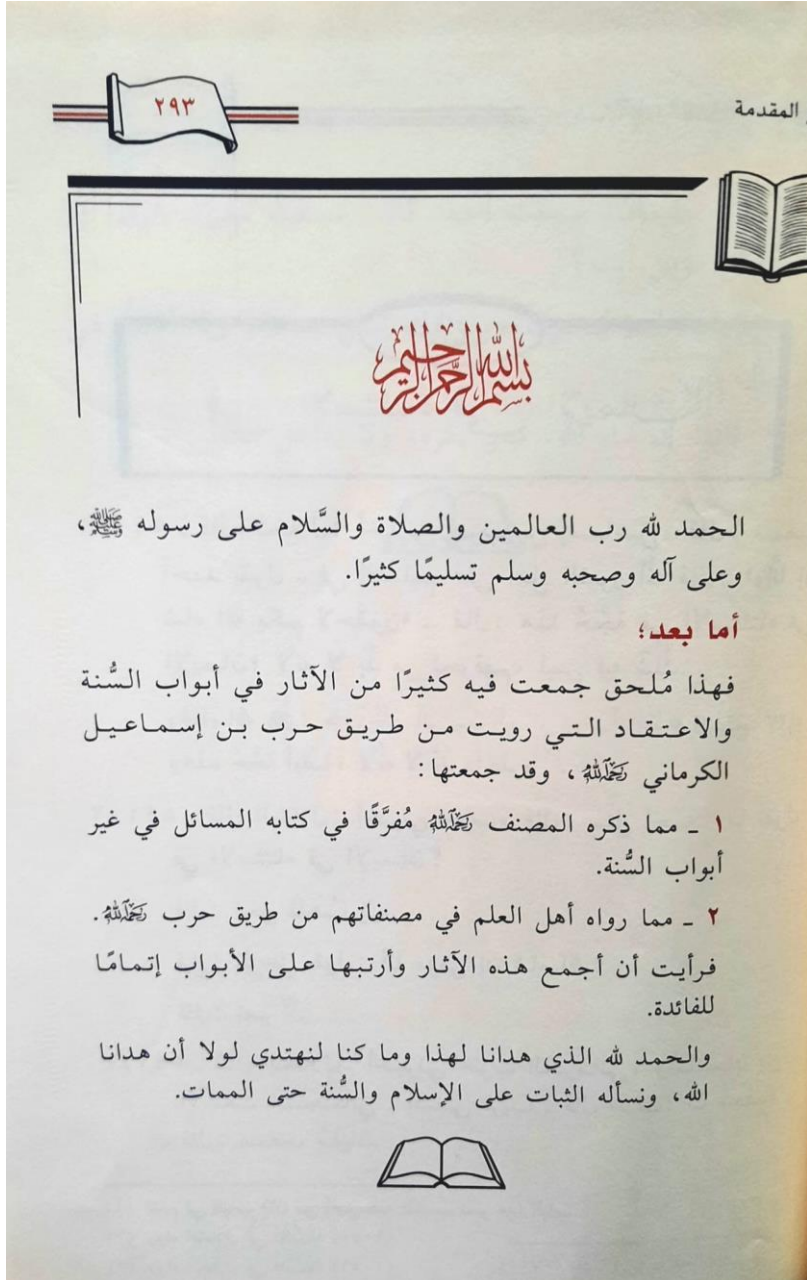 المقدمة
٢٩٣
بسم الله الرحمن الرحيم
الحمد لله رب العالمين والصلاة والسَّلام على رسوله ﷺ،
وعلى آله وصحبه وسلم تسليمًا كثيرًا.
أما بعد؛
فهذا مُلحق جمعت فيه كثيرًا من الآثار في أبواب السُّنة
والاعتقاد التي رويت من طريق حرب بن إسماعيل
الكرماني رَحِمَهُ اللهُ، وقد جمعتها:
١ ـ مما ذكره المصنف رَحِمَهُ اللهُ مُفرَّقًا في كتابه المسائل في غير
أبواب السُّنة.
٢ ـ مما رواه أهل العلم في مصنفاتهم من طريق حرب رَحِمَهُ اللهُ.
فرأيت أن أجمع هذه الآثار وأرتبها على الأبواب إتمامًا
للفائدة.
والحمد لله الذي هدانا لهذا وما كنا لنهتدي لولا أن هدانا
الله، ونسأله الثبات على الإسلام والسُّنة حتى الممات.